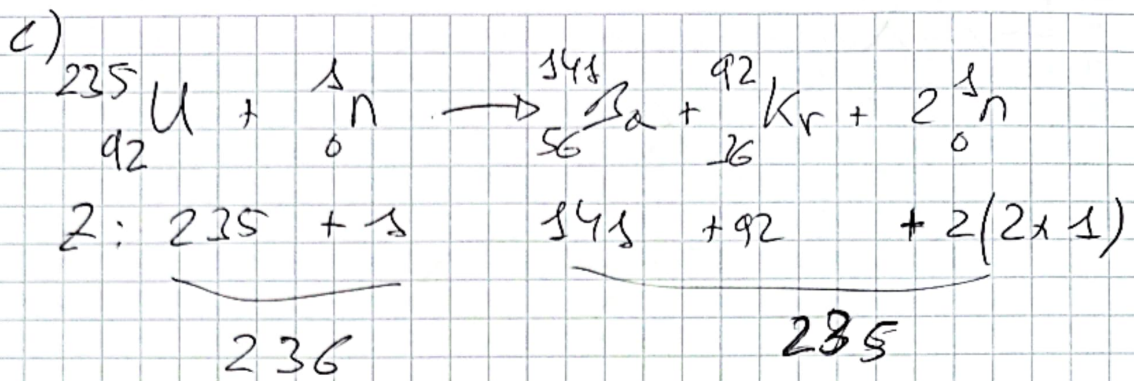 c)
²³⁵₉₂U + ¹₀n → ¹⁴¹₅₆Ba + ⁹²₃₆Kr + 2 ¹₀n
Z: 235 + 1 141 + 92 + 2(2x1)
236 235